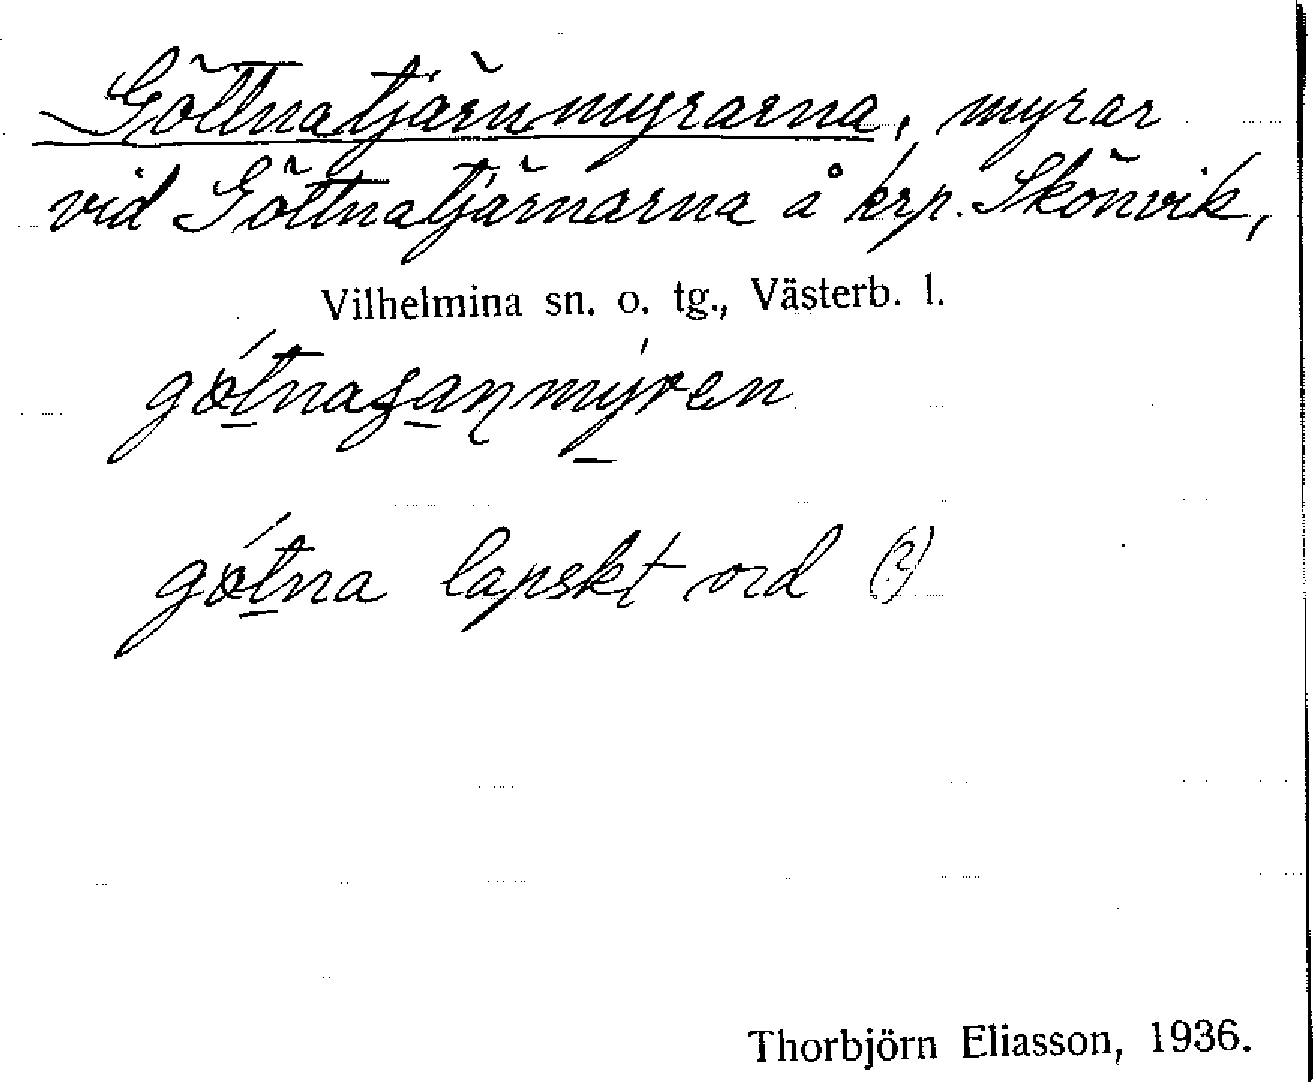 Göttnatjärnmyrarna, myrar
vid Göttnatjärnarna å krp. Skönvik,
Vilhelmina sn. o. tg., Västerb. l.
gótna lapskt ord (?)
Thorbjörn Eliasson, 1936.